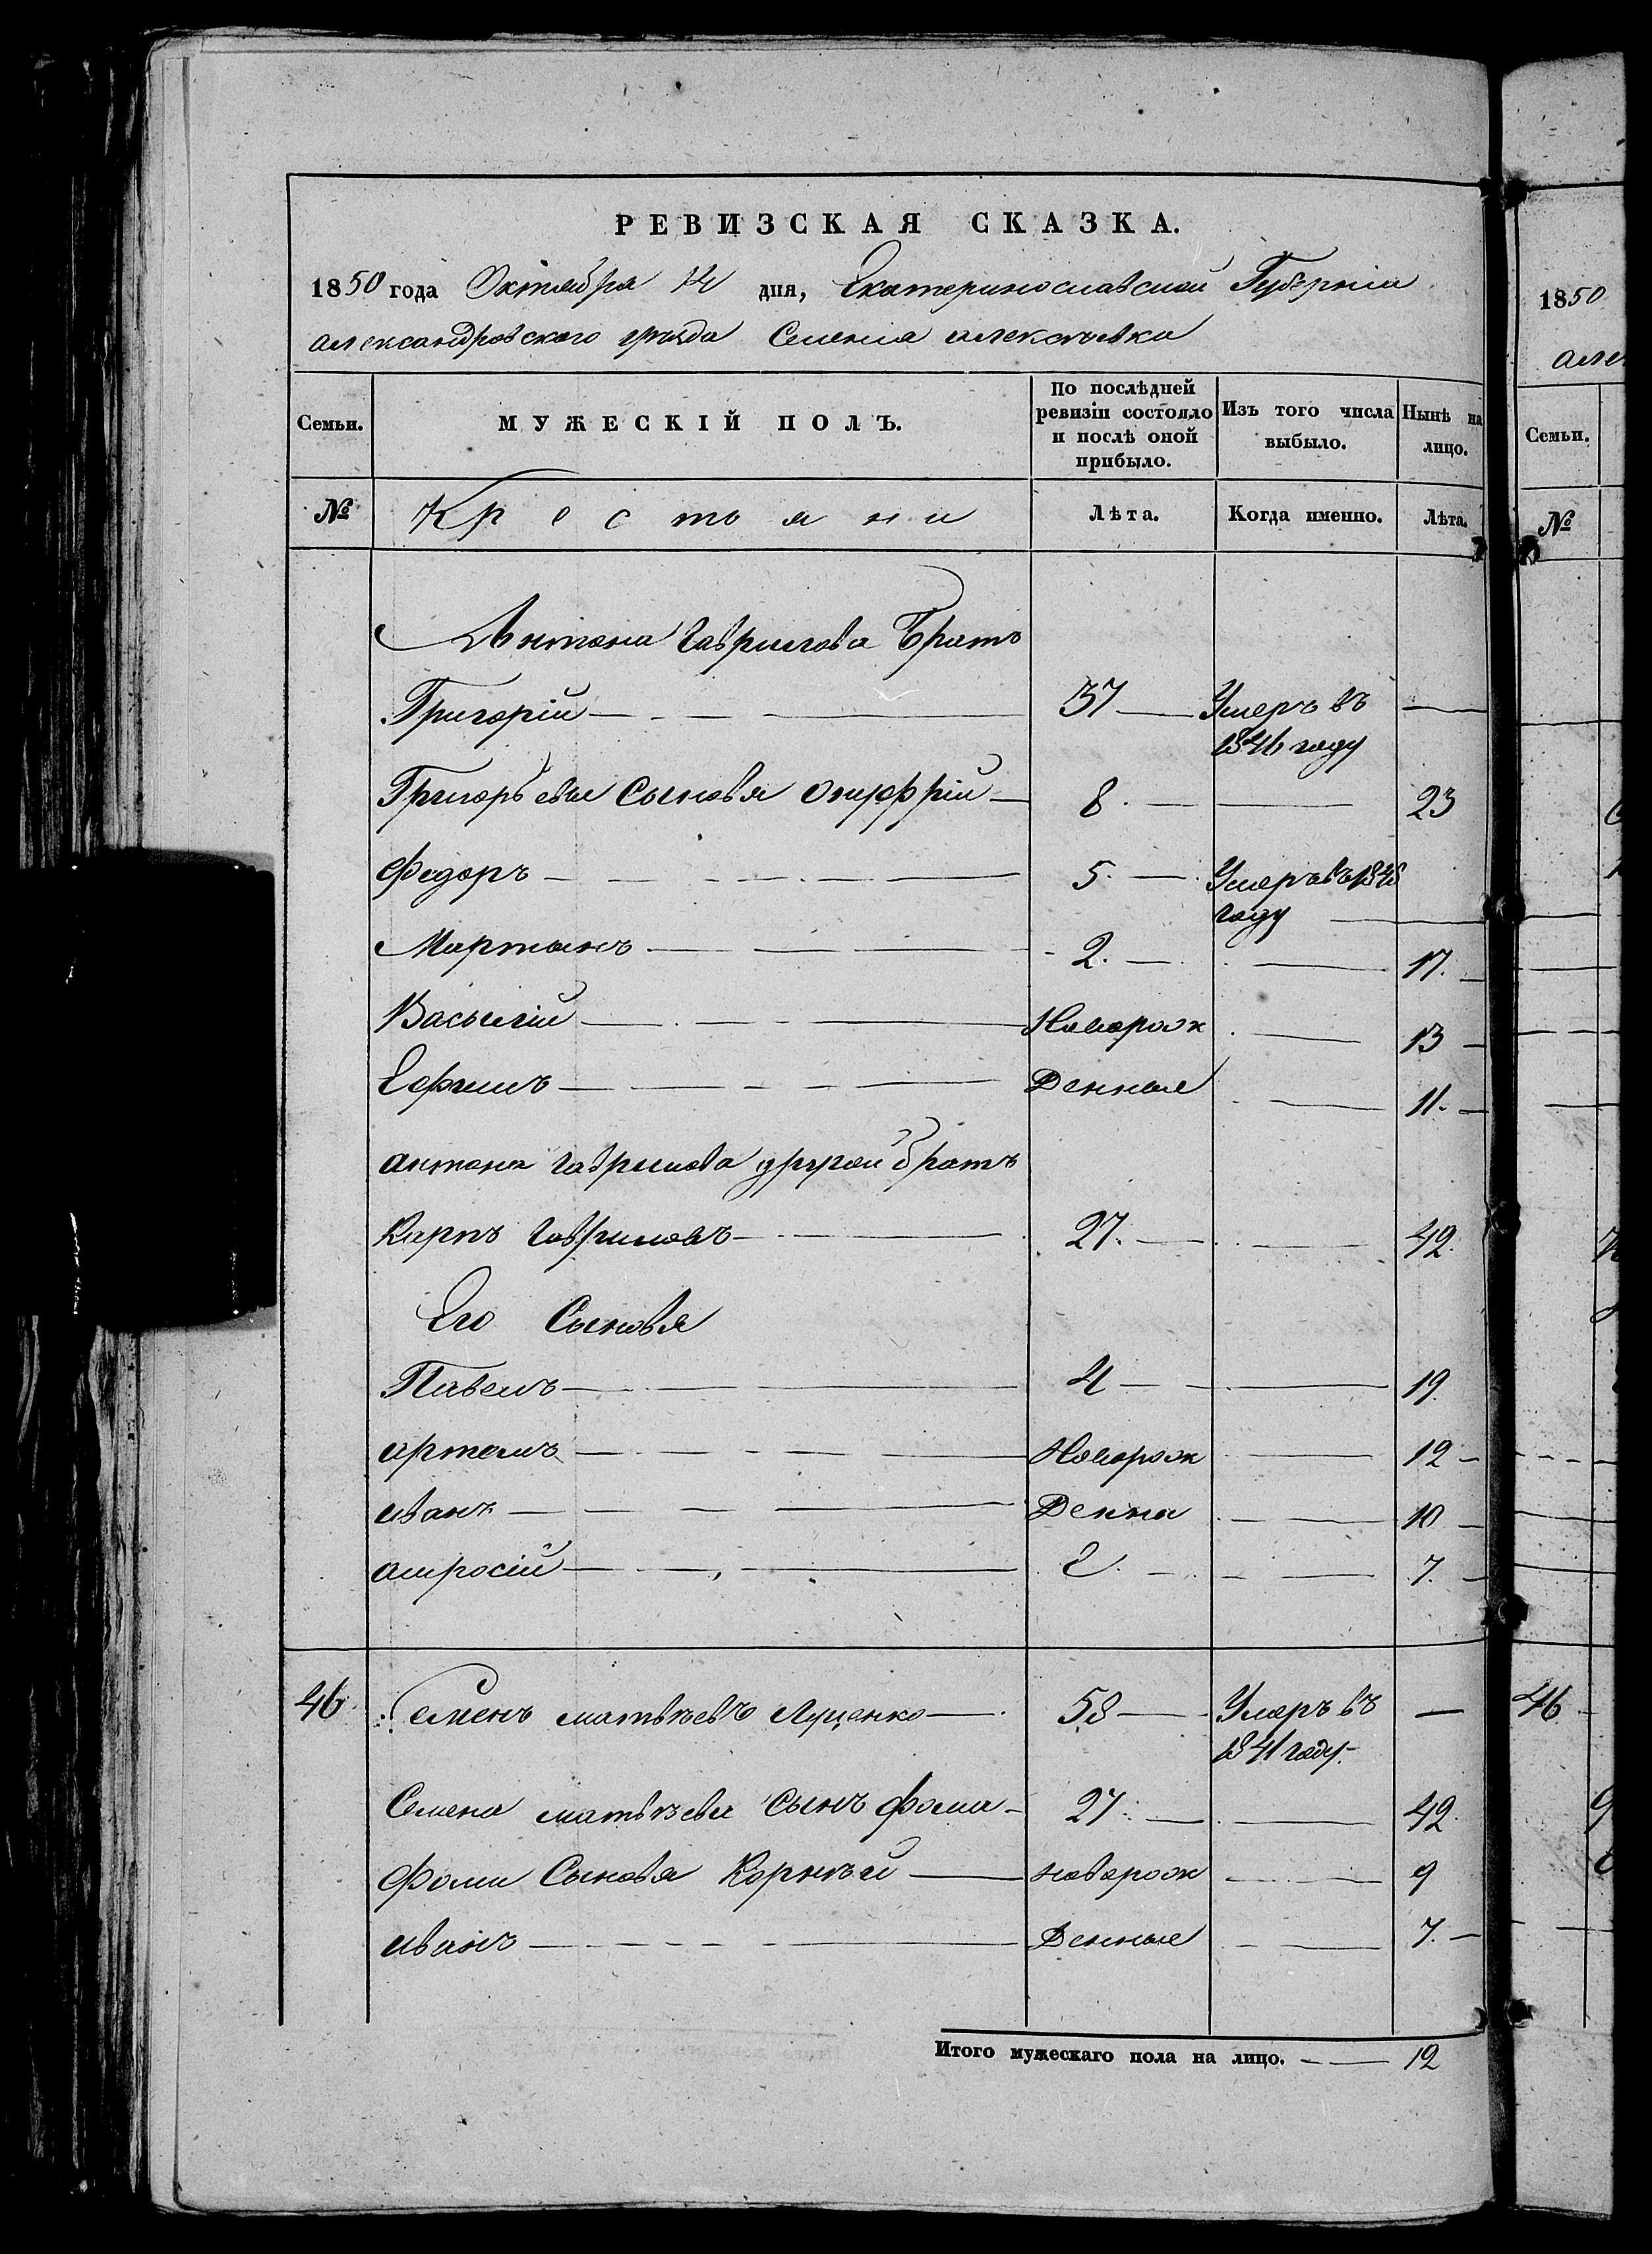 РЕВИЗСКАЯ СКАЗКА.
1850 года Октября 14 дня, Екатеринославской Губерніи
александровского уѣзда Селенія алексѣевки
Семьи. МУЖЕСКІЙ ПОЛЪ. По послѣдней ревизіи состояло и послѣ оной прибыло. Изъ того числа выбыло. Нынѣ на лицо.
№ Крестьяни Лѣта. Когда именно. Лѣта.
Антона Гаврилова Братъ
Григорій 37 Умеръ въ
1846 году
Григорьевы Сыновья Онуффрій 8. 23
Федоръ 5. Умеръ въ 1848
году
Мартынъ 2. 17.
Василій Новорож 13
Ефимъ Денные 11.
антона Гаврилова другой братъ
Карпъ Гавриловъ 27. 42.
Его Сыновья
Павелъ 4 19.
артемъ Новорож 12
иванъ Денны 10
амросій е 7.
46. Семенъ матвѣевъ Луценко 58 Умеръ въ
1841 году.
Семена матвѣева Сынъ фома 27. 42.
Фомы Сыновья Корнѣй новорож 9
иванъ Денные 7.
Итого мужескаго пола на лицо. 12
1850
але
Семьи.
№
46